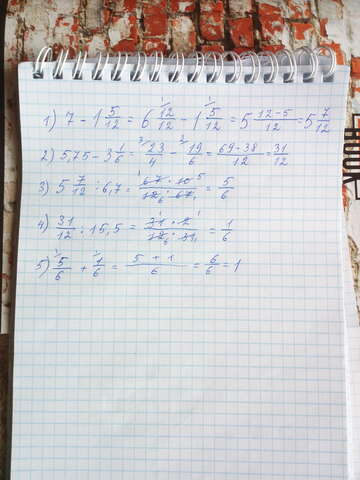 1) 7 - 1 5/12 = 6 12/12 - 1 5/12 = 5 (12-5)/12 = 5 7/12
2) 5,75 - 3 1/6 = 23/4 - 19/6 = (69-38)/12 = 31/12
3) 5 7/12 : 6,7 = (67 · 10 5)/(12 6 · 67 1) = 5/6
4) 31/12 : 15,5 = (31 1 · 2 1)/(12 6 · 31 1) = 1/6
5) 5/6 + 1/6 = (5 + 1)/6 = 6/6 = 1